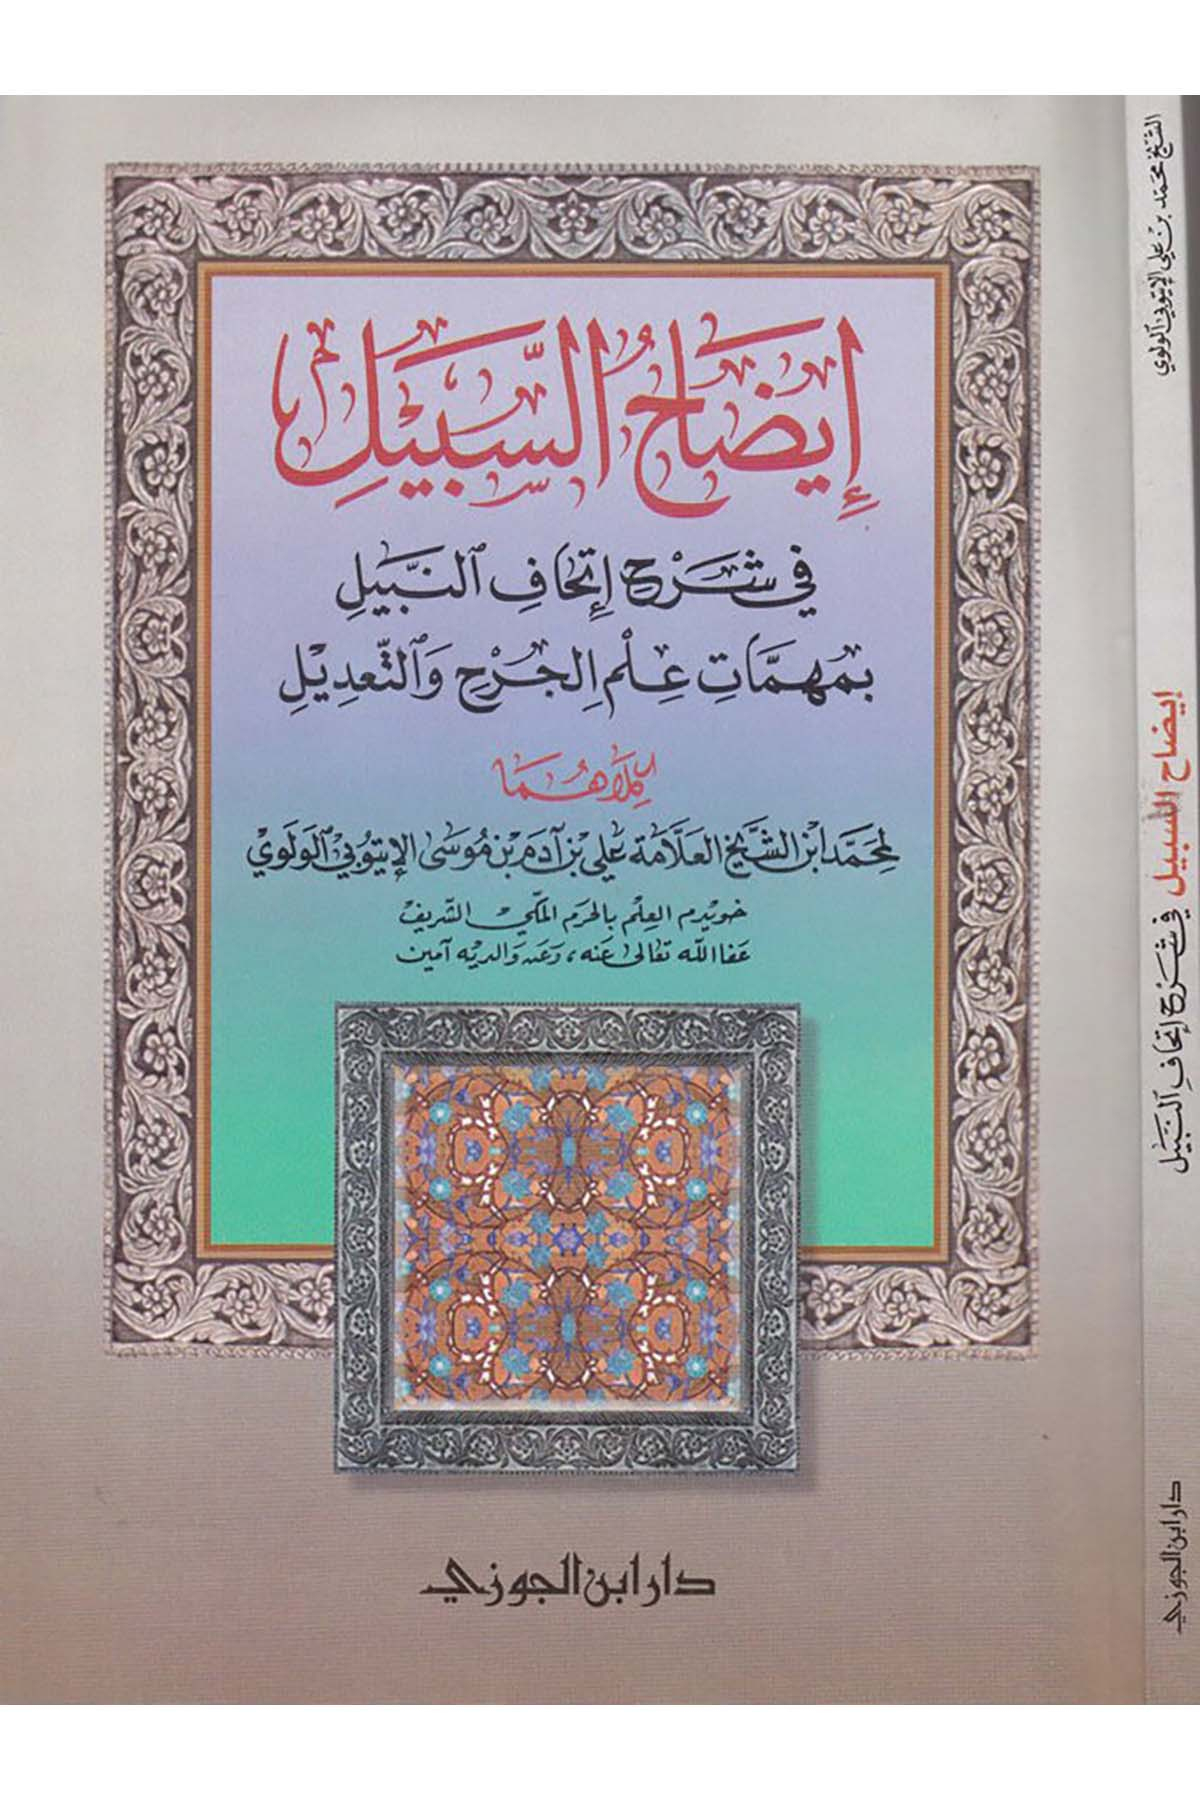 إِيضَاحُ السَّبِيلِ
فِي شَرْحِ إِتْحَافِ النَّبِيلِ
بِمُهِمَّاتِ عِلْمِ الجَرْحِ وَالتَّعْدِيلِ
كِلَاهُمَا
لمحمَّد ابن الشَّيْخ العَلَّامَة عَلي بْن آدَم بْن مُوسَى الإتيوبي الوَلَّوِي
خويدم العِلْم بالحرم المكّي الشريف
عفا الله تعالى عَنه، وعن والديه آمين
دار ابن الجوزي
الشَّيْخ محمَّد بْن عَلي الإتيوبي الوَلَّوي
إيضاح السبيل في شَرْحِ إتحافِ النَّبيل
دار ابن الجوزي